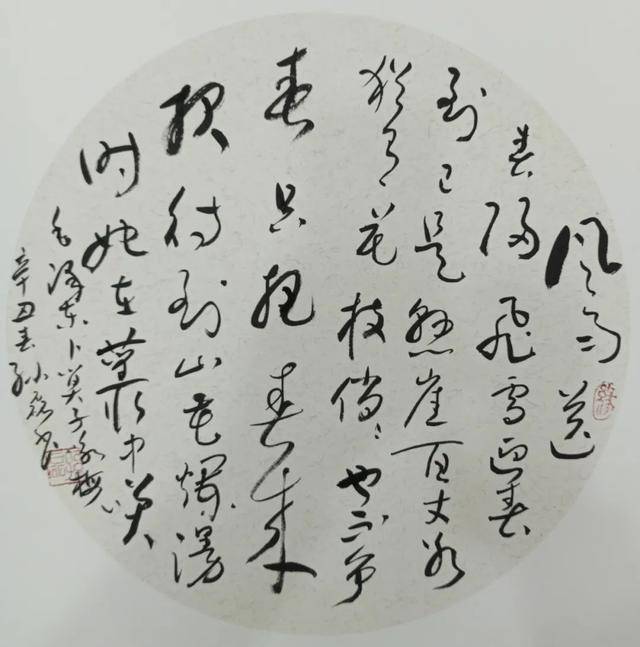 风雨送
春归飛雪迎春
到已是悬崖百丈冰
犹有花枝俏〻也不争
春只把春来
报待到山花爛漫
时她在丛中笑
毛泽东卜算子咏梅
辛丑春孙书